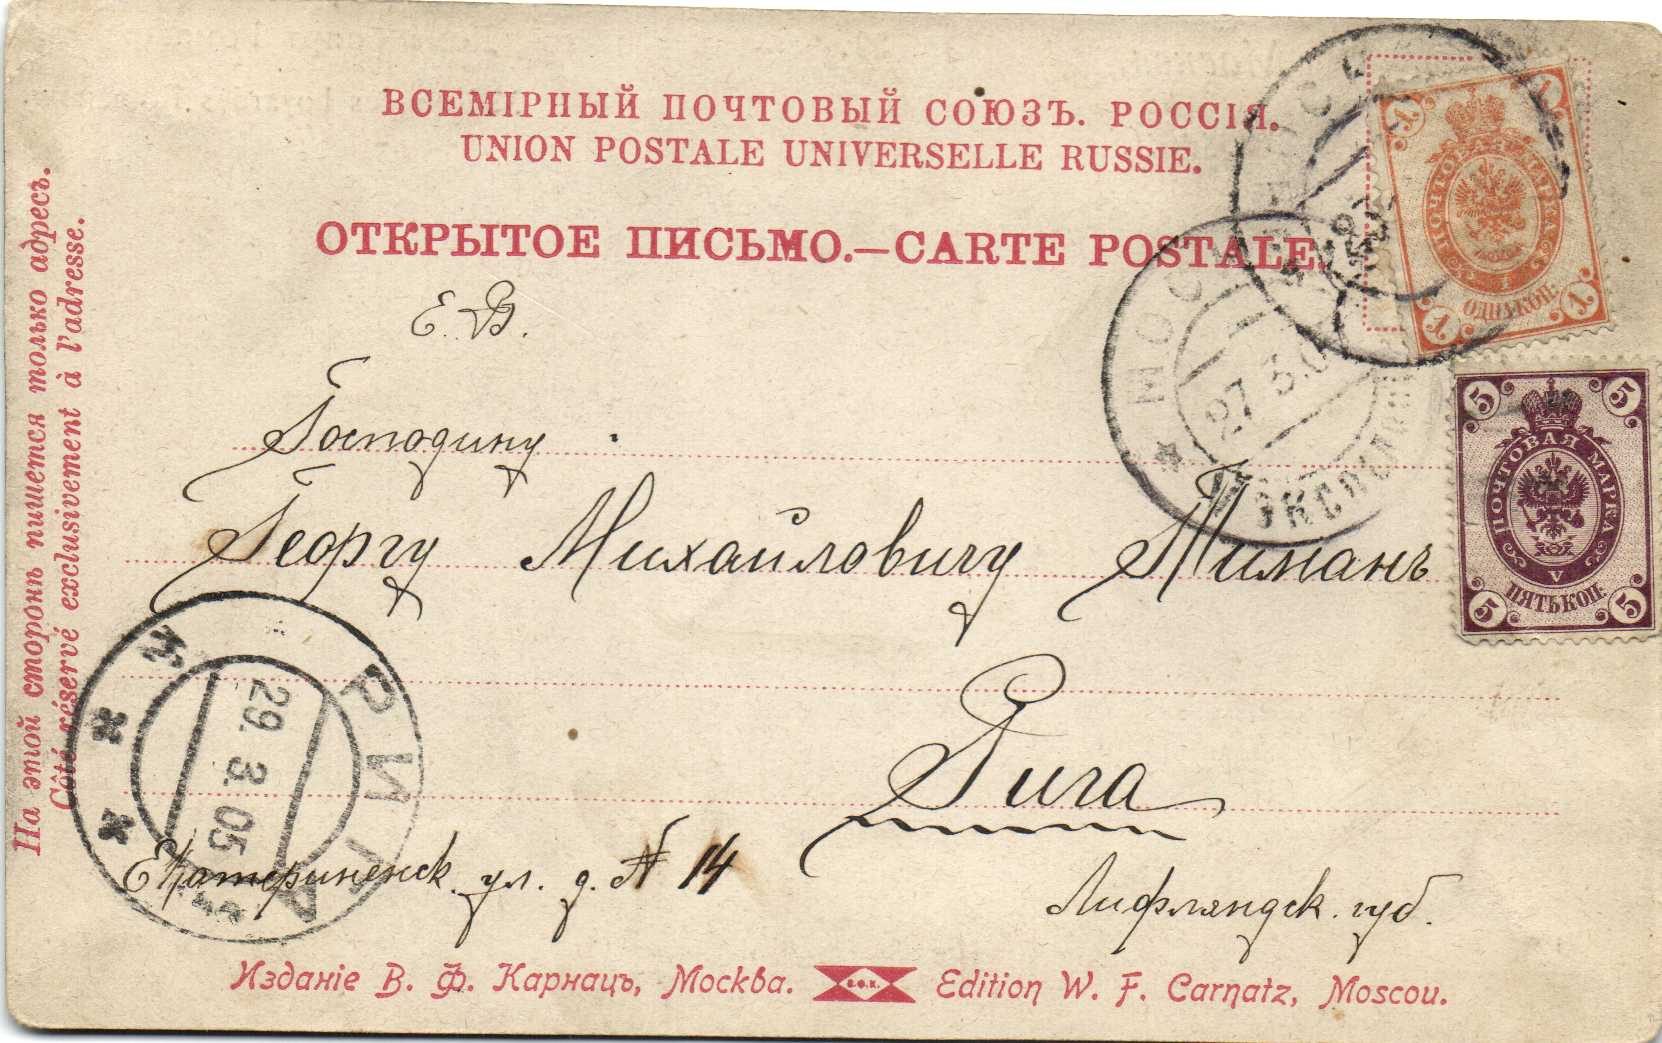 ВСЕМІРНЫЙ ПОЧТОВЫЙ СОЮЗЪ. РОССІЯ.
UNION POSTALE UNIVERSELLE RUSSIE.
ОТКРЫТОЕ ПИСЬМО.—CARTE POSTALE.
На этой сторонѣ пишется только адресъ.
Côté réservé exclusivement à l'adresse.
Е. В.
Господину
Георгу Михайловичу Тиманъ
Рига
Екатериненск. ул. д. № 14
Лифляндск. губ.
ПОЧТОВАЯ МАРКА
1 1 1 1
ОДНА КОП.
ПОЧТОВАЯ МАРКА
5 5 5 5
V
ПЯТЬ КОП.
МОС
27 3.0
ЭКСПЕД
РИГА
29. 3. 05
Изданіе В. Ф. Карнацъ, Москва.
В.Ф.К.
Edition W. F. Carnatz, Moscou.